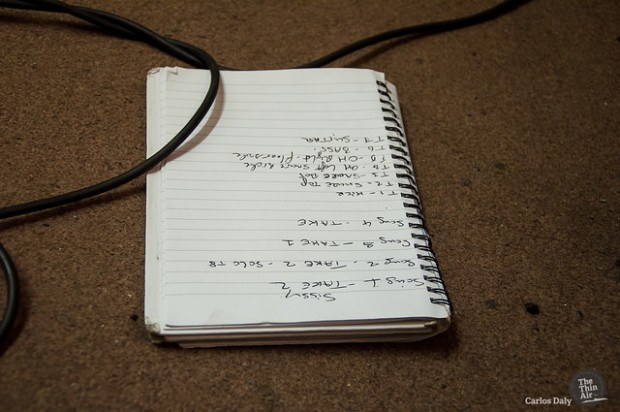 Sissy
Song 1 - TAKE 2
Song 2 - TAKE 2 - SOLO T8
Song 3 - TAKE 1
Song 4 - TAKE
T1 - KICK
T2 - SNARE TOP
T3 - SNARE BOT
T4 - OH Left Snare side
T5 - OH Right - Floor side
T6 - BASS
T7 - GUITAR
Carlos Daly
The
Thin
Air